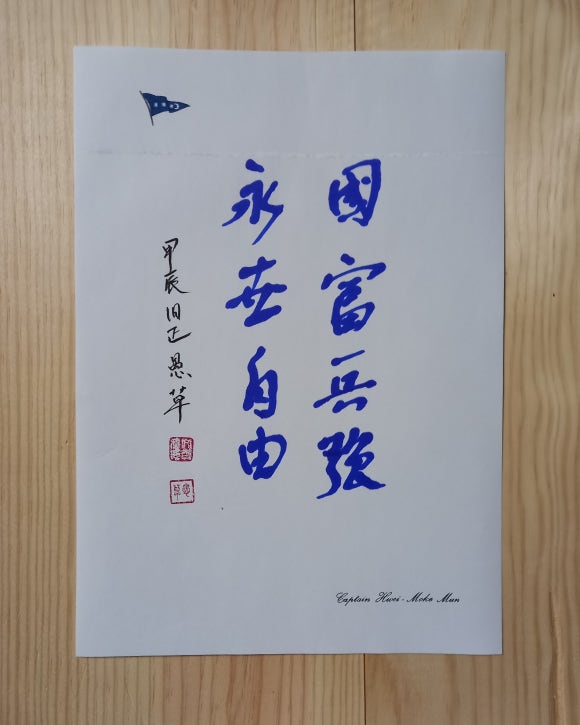 國富兵強
永世自由
甲辰旧正愚草
Captain Hwei-Moko Mun